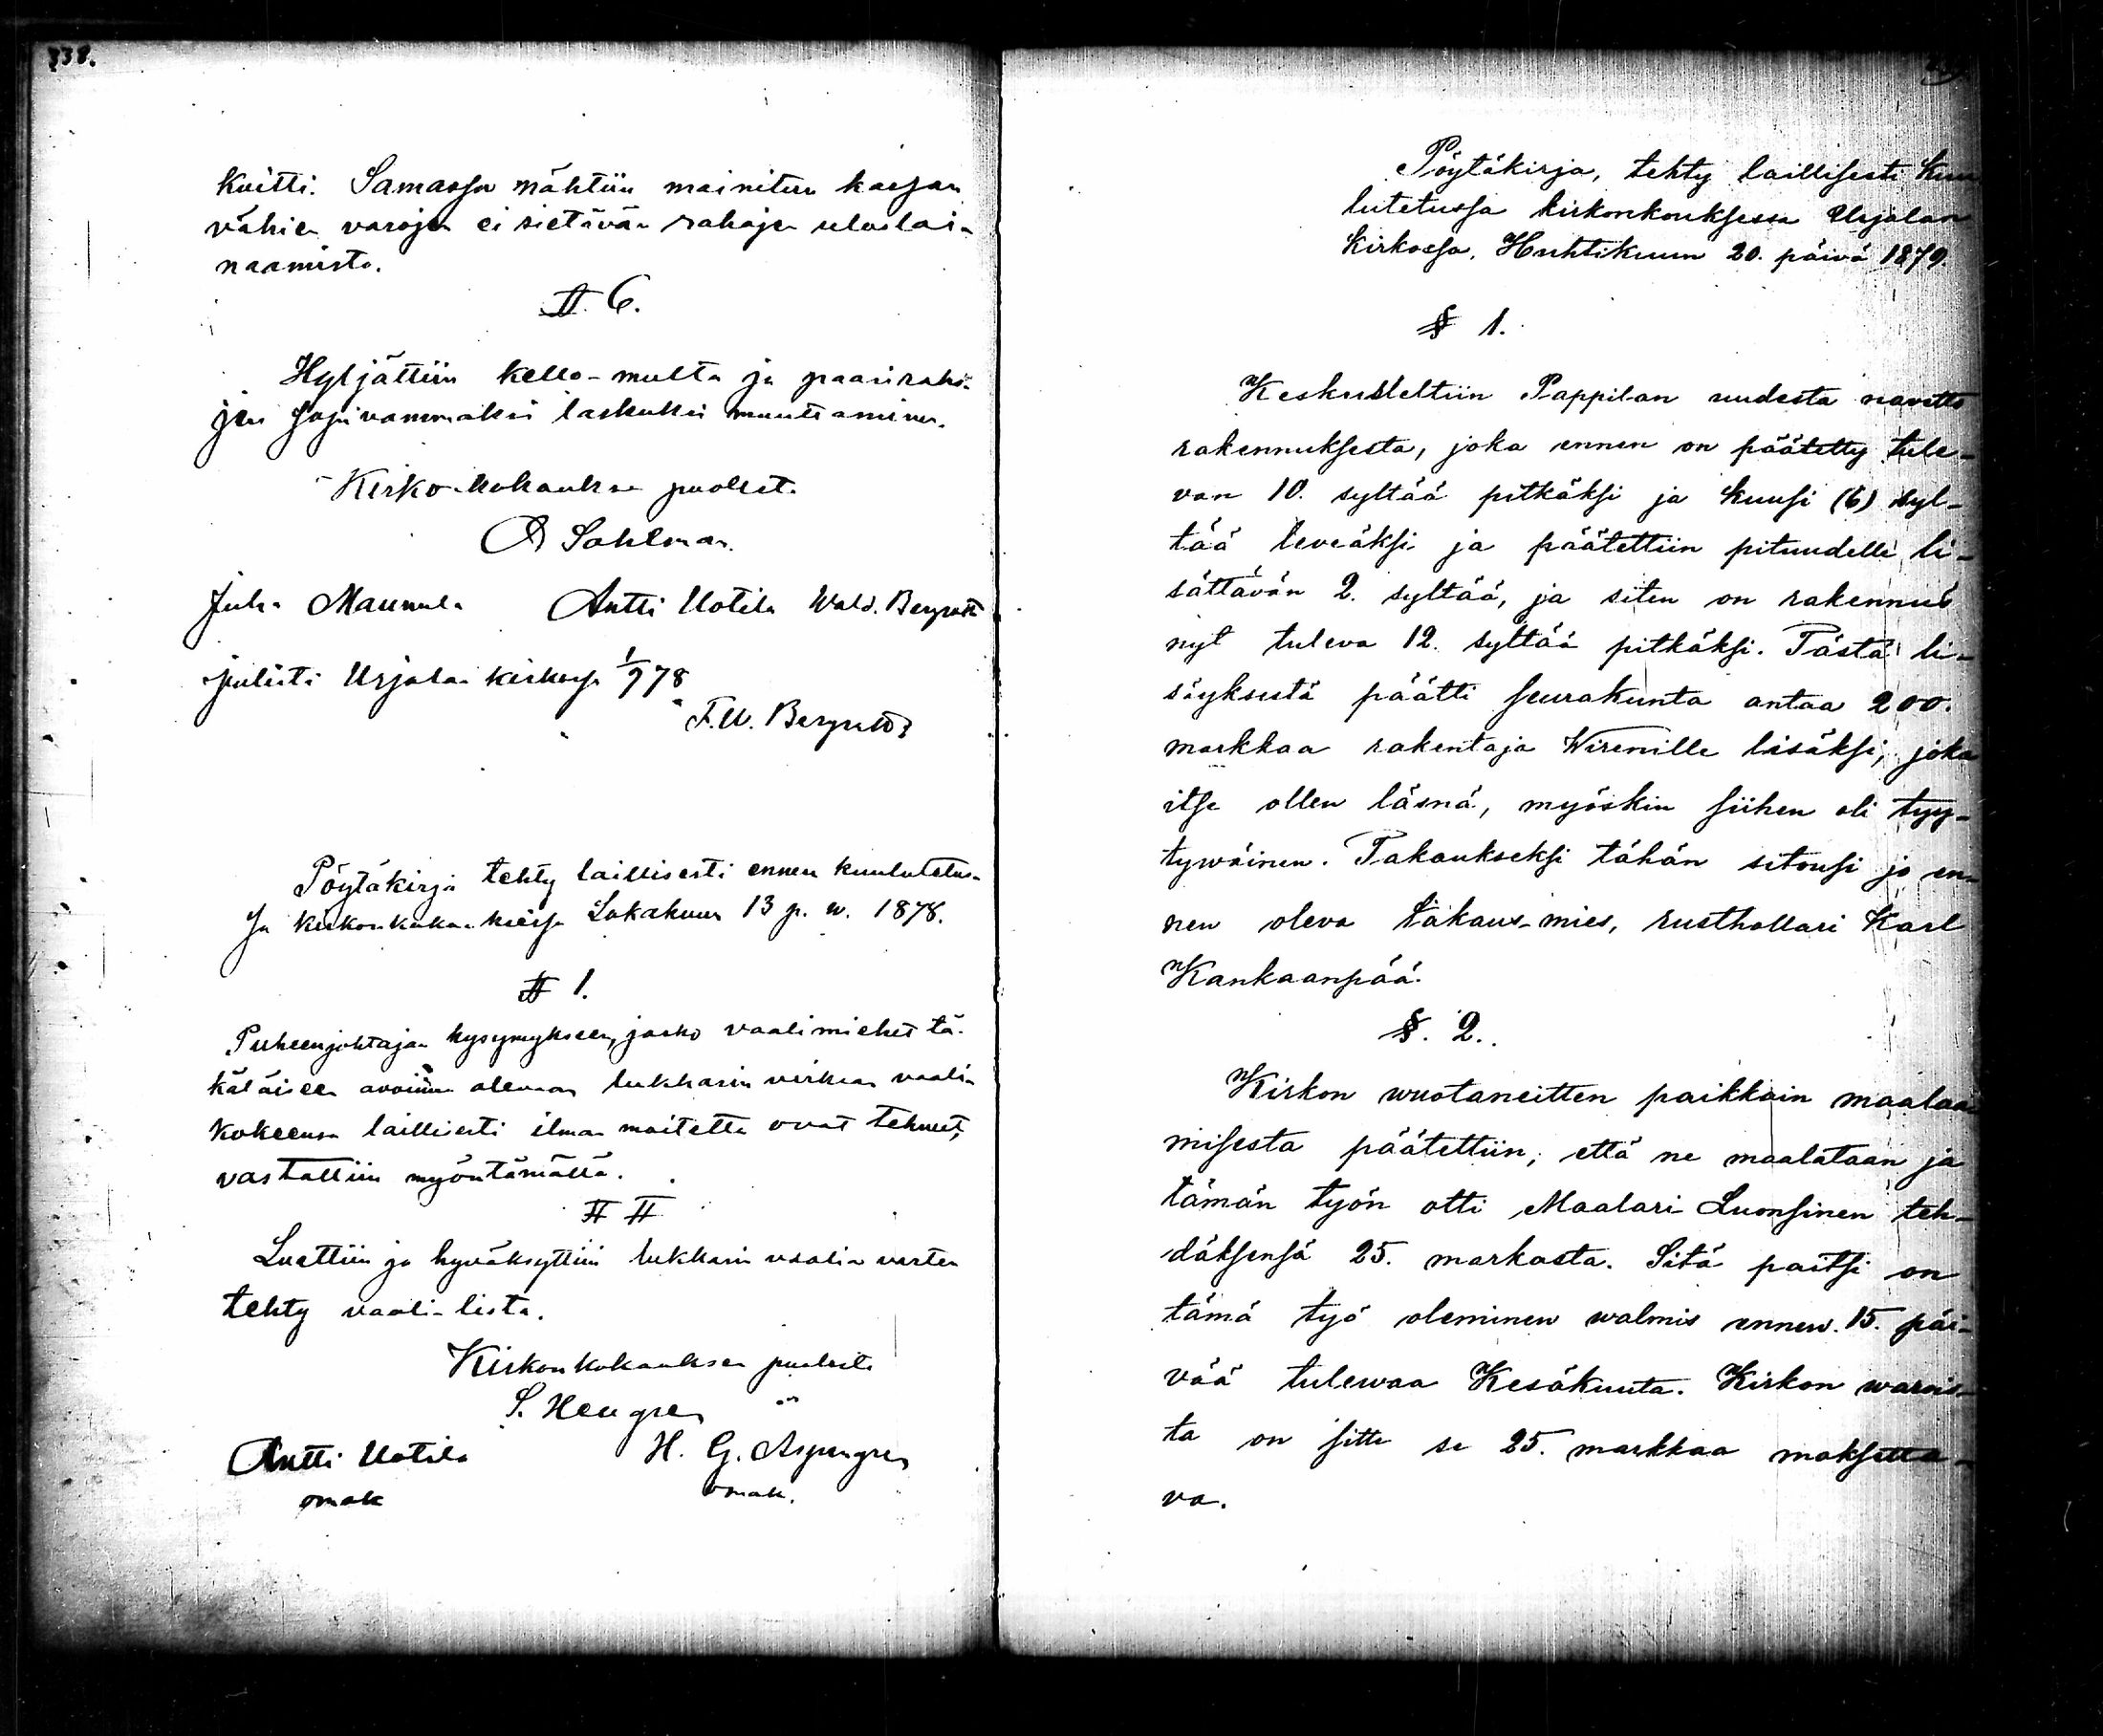 338.
kuitti. Samassa nähtiin mainitun kassan
vähien varojen ei sietävän rahojen uloslai-
naamista.
§ 6.
Hyljättiin kello-multa ja paariraho-
jen sopivammaksi laskuksi muuttaminen.
Kirko-kokouksen puolest.
A Sahlman.
Juha Maunula Antti Uotila Wald. Bergroth
julisti Urjalan kirkossa 1/9 78
F.W. Bergroth
Pöytäkirja tehty laillisesti ennen kuulutetus-
sa kirkonkokouksessa Lokakuun 13 p. w. 1878.
§ 1.
Puheenjohtajan kysymykseen, josko vaalimiehet tä-
käläisen avoinna olevan lukkarin virkaan vaali-
kokeensa laillisesti ilman moitetta ovat tehneet,
vastattiin myöntämällä.
§ II
Luettiin ja hyväksyttiin lukkarin vaalia varten
tehty vaali-lista.
Kirkonkokouksen puolesta
S. Hengren
Antti Uotila H. G. Aspengren
omak omak.
Pöytäkirja, tehty laillisesti kuu
lutetussa kirkonkouksessa Urjalan
kirkossa, Huhtikuun 20. päivä 1879.
§ 1.
Keskusteltiin Pappilan uudesta navetto
rakennuksesta, joka ennen on päätetty tule-
van 10. syltää pitkäksi ja kuusi (6) syl-
tää leveäksi ja päätettiin pituudelle li-
sättävän 2. syltää, ja siten on rakennus
nyt tuleva 12. syltää pitkäksi. Tästä li-
säyksestä päätti seurakunta antaa 200.
markkaa rakentaja Wirenille lisäksi, joka
itse ollen läsnä, myöskin siihen oli tyy-
tywäinen. Takaukseksi tähän sitousi jo en-
nen oleva takaus-mies, rusthollari Karl
Kankaanpää.
§. 2.
Kirkon wuotaneitten paikkain maalaa
misesta päätettiin, että ne maalataan ja
tämän työn otti Maalari Luonsinen teh-
däksensä 25. markasta. Sitä paitsi on
tämä työ oleminen walmis ennen 15. päi-
vää tulewaa Kesäkuuta. Kirkon warois-
ta on sitte se 25. markkaa maksetta-
va.